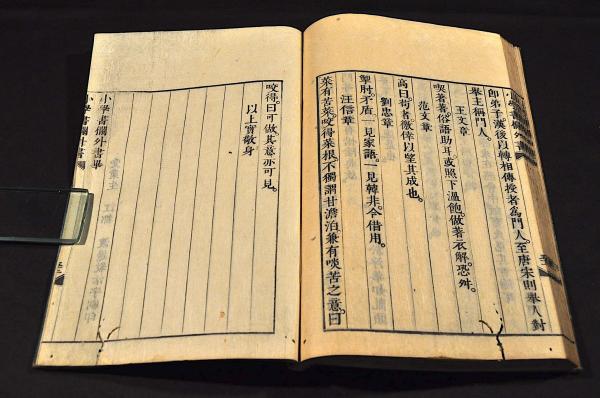 小學書欄外書
即弟子漢後以轉相傳授者為門人。至唐宋則舉人對
舉主稱門人。
王文章
喫著著俗語助耳或照下溫飽。做著衣解恐舛。
范文章
高曰。苟者徼倖以望其成也。
劉忠章
掣肘矛盾。一見家語。一見韓非。今借用。
汪信章
菜有苦菜。咬得菜根。不獨謂甘澹泊兼有啖苦之意。曰
咬得。曰可做其意亦可見。
以上實敬身
小學書欄外書畢
小學書欄外書